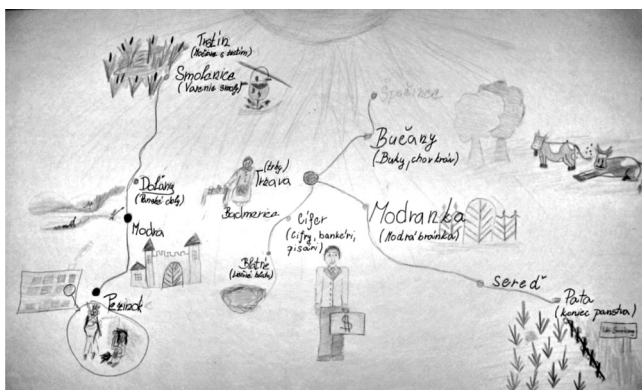 Trstín
(Močiare s trstím)
Smolenice
(Varenie smoly)
Špačince
Bučany
(Buky, chov kráv)
Doľany
(Panské doly)
Modra
(trhy)
Trnava
Budmerice
Cífer
(Cifry, bankéri,
pisári)
Modranka
(Modrá bránka)
Blatné
Sereď
Pezinok
Pata
(koniec panstva)
$